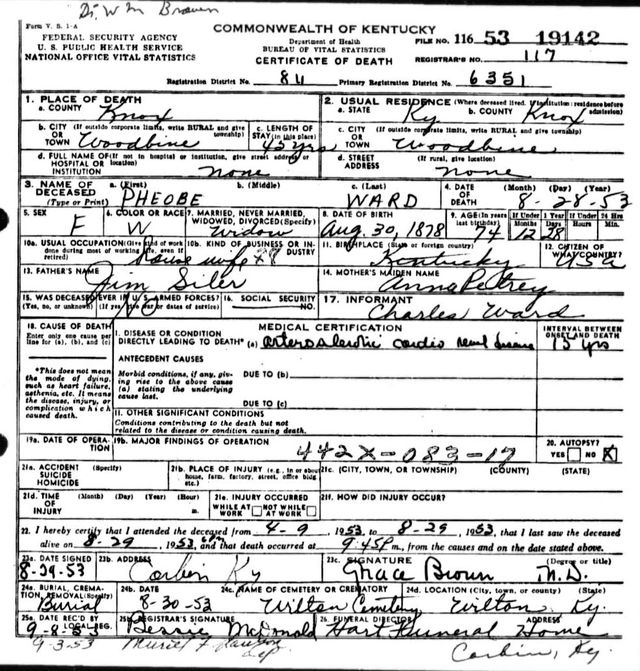 Dr. W M Brown
Form V. S. 1-A
FEDERAL SECURITY AGENCY
U. S. PUBLIC HEALTH SERVICE
NATIONAL OFFICE VITAL STATISTICS
COMMONWEALTH OF KENTUCKY
Department of Health
BUREAU OF VITAL STATISTICS
CERTIFICATE OF DEATH
FILE NO. 116 53 19142
REGISTRAR'S NO. 117
Registration District No. 84 Primary Registration District No. 6351
1. PLACE OF DEATH
a. COUNTY Knox
2. USUAL RESIDENCE (Where deceased lived. If institution: residence before admission)
a. STATE Ky b. COUNTY Knox
b. CITY (If outside corporate limits, write RURAL and give township)
OR TOWN Woodbine
c. LENGTH OF STAY (in this place) 45 yrs
c. CITY (If outside corporate limits, write RURAL and give township)
OR TOWN Woodbine
d. FULL NAME OF (If not in hospital or institution, give street address or location)
HOSPITAL OR INSTITUTION none
d. STREET ADDRESS (If rural, give location) none
3. NAME OF DECEASED (Type or Print)
a. (First) PHEOBE b. (Middle) c. (Last) WARD
4. DATE OF DEATH (Month) (Day) (Year) 8-28-53
5. SEX F
6. COLOR OR RACE W
7. MARRIED, NEVER MARRIED, WIDOWED, DIVORCED (Specify) Widow
8. DATE OF BIRTH Aug. 30, 1878
9. AGE (In years last birthday) 74 If Under 1 Year Months 12 Days 28 If Under 24 Hrs Hours Min.
10a. USUAL OCCUPATION (Give kind of work done during most of working life, even if retired) House wife
10b. KIND OF BUSINESS OR INDUSTRY
11. BIRTHPLACE (State or foreign country) Kentucky
12. CITIZEN OF WHAT COUNTRY? USA
13. FATHER'S NAME Jim Siler
14. MOTHER'S MAIDEN NAME Anna Petrey
15. WAS DECEASED EVER IN U. S. ARMED FORCES? (Yes, no, or unknown) (If yes, give war or dates of service) No
16. SOCIAL SECURITY NO.
17. INFORMANT Charles Ward
18. CAUSE OF DEATH
Enter only one cause per line for (a), (b), and (c)
MEDICAL CERTIFICATION
INTERVAL BETWEEN ONSET AND DEATH
I. DISEASE OR CONDITION DIRECTLY LEADING TO DEATH* (a) arterosclerotic cardio renal disease 15 yrs
*This does not mean the mode of dying, such as heart failure, asthenia, etc. It means the disease, injury, or complication which caused death.
ANTECEDENT CAUSES
Morbid conditions, if any, giving rise to the above cause (a) stating the underlying cause last.
DUE TO (b)
DUE TO (c)
II. OTHER SIGNIFICANT CONDITIONS
Conditions contributing to the death but not related to the disease or condition causing death.
19a. DATE OF OPERATION
19b. MAJOR FINDINGS OF OPERATION
442X-083-17
20. AUTOPSY? YES NO X
21a. ACCIDENT SUICIDE HOMICIDE (Specify)
21b. PLACE OF INJURY (e.g., in or about home, farm, factory, street, office bldg etc.)
21c. (CITY, TOWN, OR TOWNSHIP) (COUNTY) (STATE)
21d. TIME OF INJURY (Month) (Day) (Year) (Hour) m.
21e. INJURY OCCURRED WHILE AT WORK NOT WHILE AT WORK
21f. HOW DID INJURY OCCUR?
22. I hereby certify that I attended the deceased from 4-9, 1953 to 8-29, 1953, that I last saw the deceased
alive on 8-29, 1953, and that death occurred at 9:45 P m., from the causes and on the date stated above.
23a. DATE SIGNED 8-29-53
23b. ADDRESS Corbin Ky
23c. SIGNATURE (Degree or title) Grace Brown M.D.
24a. BURIAL, CREMATION, REMOVAL (Specify) Burial
24b. DATE 8-30-53
24c. NAME OF CEMETERY OR CREMATORY Wilton Cemetery
24d. LOCATION (City, town, or county) (State) Wilton, Ky.
25a. DATE REC'D BY LOCAL REG. 9-8-53
25b. REGISTRAR'S SIGNATURE Bessie McDonald
26. FUNERAL DIRECTOR ADDRESS Hart Funeral Home
9-3-53 Muriel F.
Corbin, Ky.